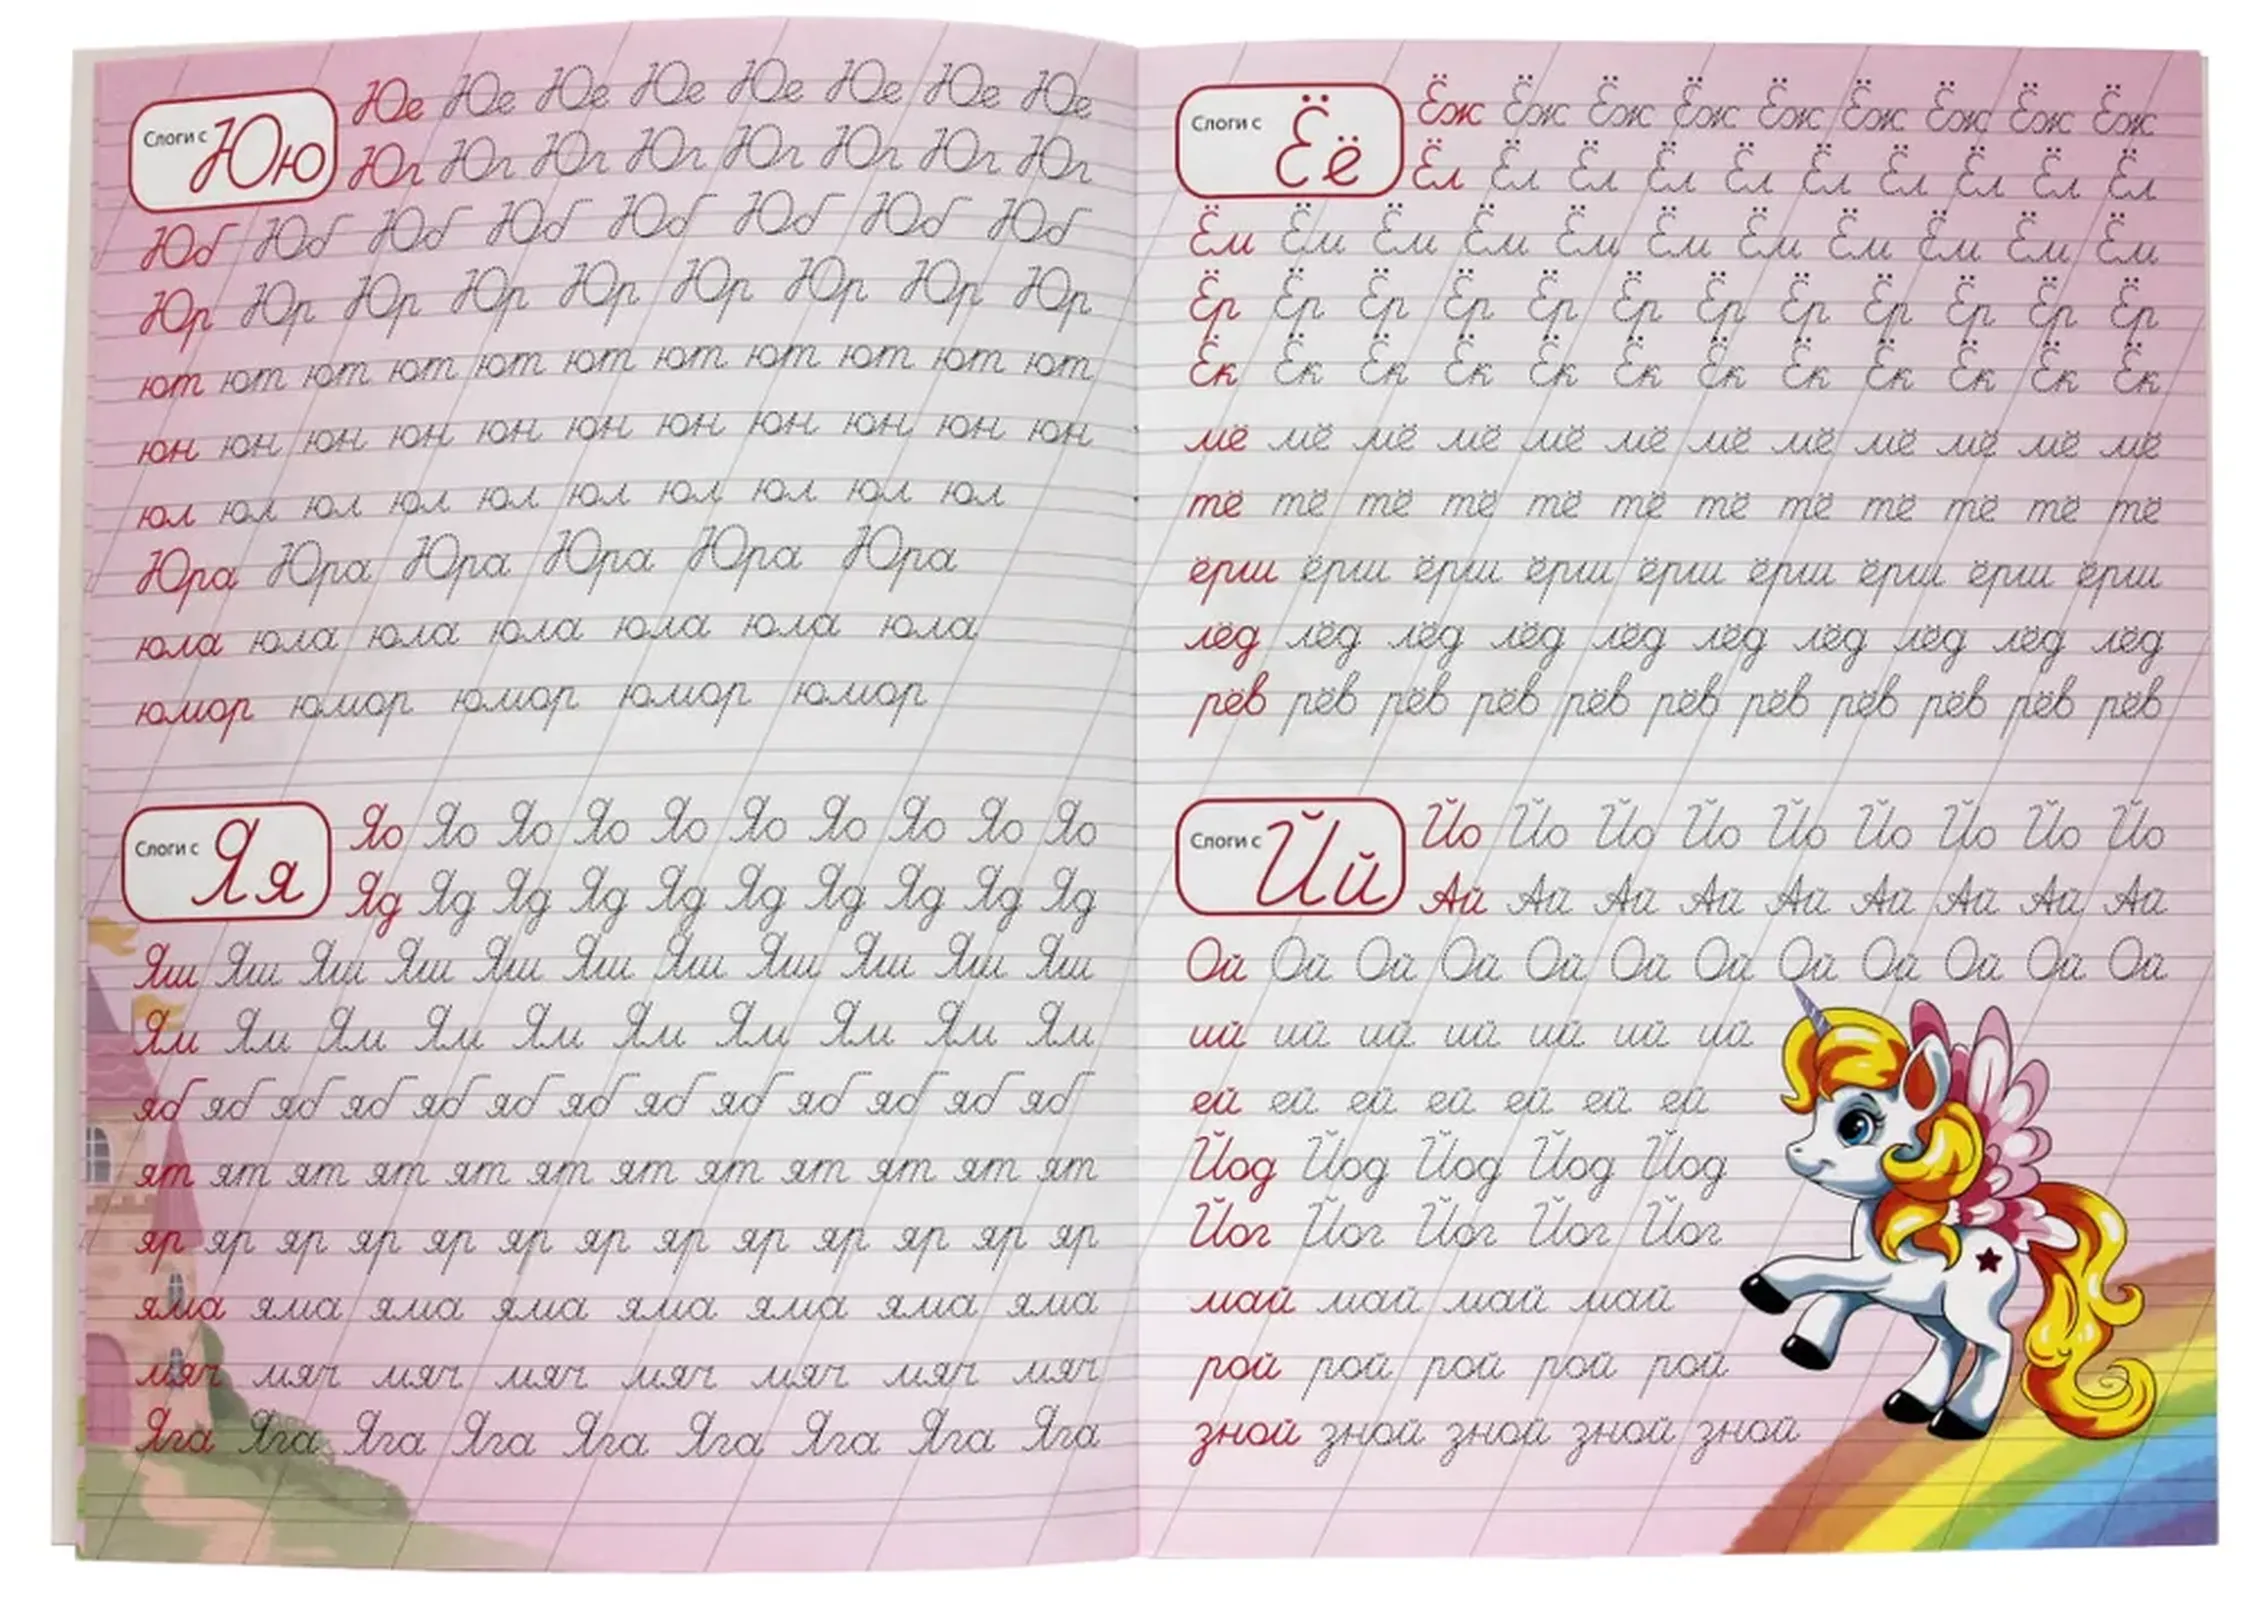 Слоги с Юю
Юе Юе Юе Юе Юе Юе Юе Юе
Юг Юг Юг Юг Юг Юг Юг Юг
Юб Юб Юб Юб Юб Юб Юб Юб
Юр Юр Юр Юр Юр Юр Юр Юр Юр
ют ют ют ют ют ют ют ют ют ют ют
юн юн юн юн юн юн юн юн юн юн юн
юл юл юл юл юл юл юл юл юл юл
Юра Юра Юра Юра Юра Юра
юла юла юла юла юла юла юла
юмор юмор юмор юмор юмор
Слоги с Яя
Яо Яо Яо Яо Яо Яо Яо Яо Яо Яо
Яд Яд Яд Яд Яд Яд Яд Яд Яд Яд
Яш Яш Яш Яш Яш Яш Яш Яш Яш Яш Яш
Ям Ям Ям Ям Ям Ям Ям Ям Ям Ям
яб яб яб яб яб яб яб яб яб яб яб яб яб
ят ят ят ят ят ят ят ят ят ят ят ят
яр яр яр яр яр яр яр яр яр яр яр яр яр
яма яма яма яма яма яма яма яма
мяч мяч мяч мяч мяч мяч мяч мяч
Яга Яга Яга Яга Яга Яга Яга Яга Яга
Слоги с Ёё
Ёж Ёж Ёж Ёж Ёж Ёж Ёж Ёж Ёж
Ёл Ёл Ёл Ёл Ёл Ёл Ёл Ёл Ёл Ёл
Ём Ём Ём Ём Ём Ём Ём Ём Ём Ём Ём
Ёр Ёр Ёр Ёр Ёр Ёр Ёр Ёр Ёр Ёр Ёр Ёр
Ёк Ёк Ёк Ёк Ёк Ёк Ёк Ёк Ёк Ёк Ёк Ёк
мё мё мё мё мё мё мё мё мё мё мё мё
тё тё тё тё тё тё тё тё тё тё тё тё
ёрш ёрш ёрш ёрш ёрш ёрш ёрш ёрш ёрш
лёд лёд лёд лёд лёд лёд лёд лёд лёд лёд
рёв рёв рёв рёв рёв рёв рёв рёв рёв рёв рёв
Слоги с Йй
Йо Йо Йо Йо Йо Йо Йо Йо Йо
Ай Ай Ай Ай Ай Ай Ай Ай Ай
Ой Ой Ой Ой Ой Ой Ой Ой Ой Ой Ой Ой
ий ий ий ий ий ий ий
ей ей ей ей ей ей ей
Йод Йод Йод Йод Йод
Йог Йог Йог Йог Йог
май май май май
рой рой рой рой рой
зной зной зной зной зной